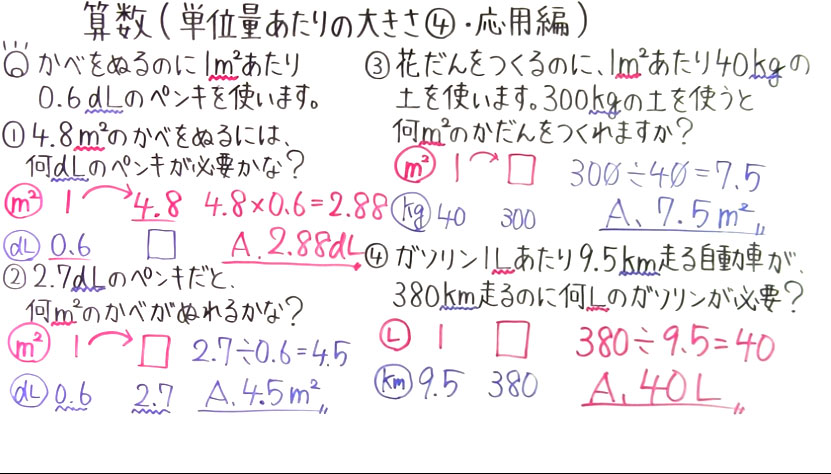 算数(単位量あたりの大きさ④・応用編)
かべをぬるのに1m²あたり
0.6dLのペンキを使います。
①4.8m²のかべをぬるには、
何dLのペンキが必要かな?
m² 1 4.8 4.8×0.6=2.88
dL 0.6 □ A.2.88dL
②2.7dLのペンキだと、
何m²のかべがぬれるかな?
m² 1 □ 2.7÷0.6=4.5
dL 0.6 2.7 A.4.5m²
③花だんをつくるのに、1m²あたり40kgの
土を使います。300kgの土を使うと
何m²のかだんをつくれますか?
m² 1 □ 300÷40=7.5
kg 40 300 A、7.5m²
④ガソリン1Lあたり9.5km走る自動車が、
380km走るのに何Lのガソリンが必要?
L 1 □ 380÷9.5=40
km 9.5 380 A、40L